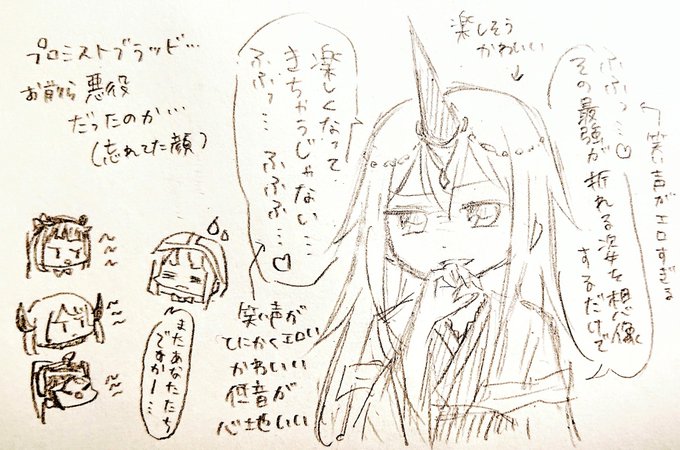 プロミストブラッド…
お前ら悪役
だったのか…
(忘れてた顔)
楽しくなって
きちゃうじゃない…
ふふっ… ふふふ…♡
楽しそう
かわいい
↓
ふふっ…♡
その最強が折れる姿を想像
するだけで
← 笑い声がエロすぎる
またあなたたち
ですかー…
笑い声が
とにかくエロい
かわいい
低音が
心地いい